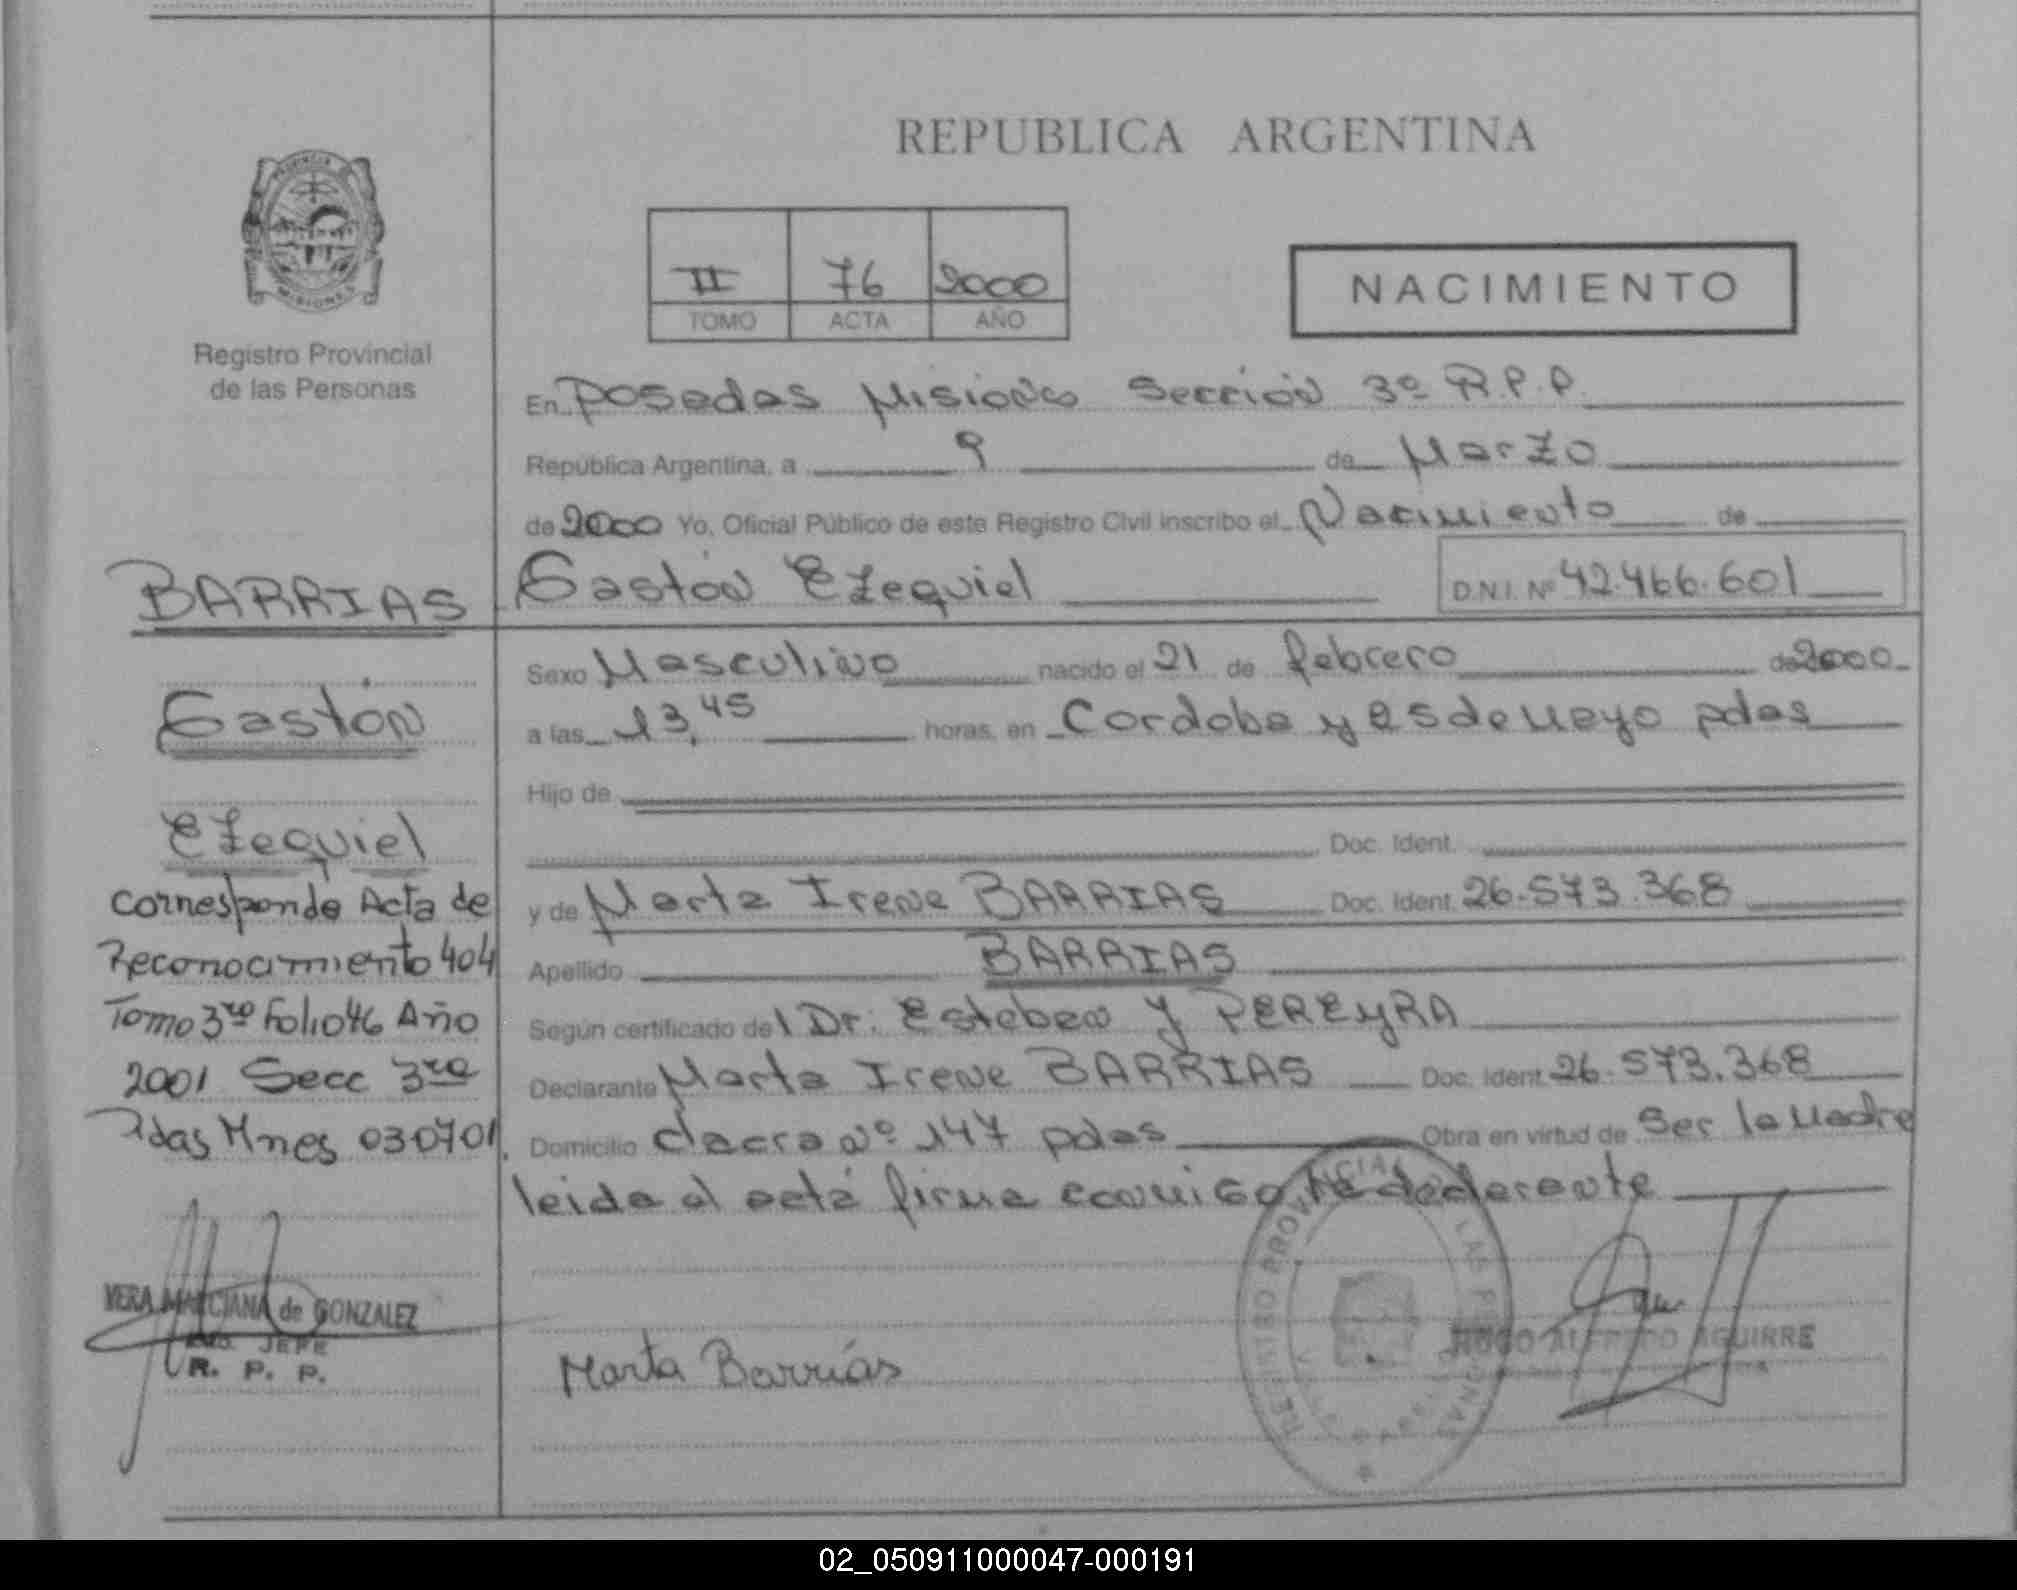 REPUBLICA ARGENTINA
II 76 2000
TOMO ACTA AÑO
NACIMIENTO
PROVINCIA
MISIONES
Registro Provincial
de las Personas
En Posadas Misiones Sección 3º R.P.P.
República Argentina, a 9 de Marzo
de 2000 Yo, Oficial Público de este Registro Civil inscribo el Nacimiento de
Gastón Ezequiel D.N.I. Nº 42.466.601
Sexo Masculino nacido el 21 de febrero de 2000
a las 13,45 horas, en Cordoba y 25 de Mayo pdas
Hijo de
Doc. Ident.
y de Marta Irene BARRIAS Doc. Ident. 26.573.368
Apellido BARRIAS
Según certificado del Dr. Esteban Y PEREYRA
Declarante Marta Irene BARRIAS Doc. Ident. 26.573.368
Domicilio chacra nº 147 pdas Obra en virtud de Ser la Madre
leida el acta firma conmigo la declarante
Marta Barrias
REGISTRO PROVINCIAL LAS PERSONAS
HUGO ALFREDO AGUIRRE
BARRIAS
Gastón
Ezequiel
corresponde Acta de
Reconocimiento 404
Tomo 3ro Folio 46 Año
2001 Secc 3ra
Pdas Mnes 030701.
VERA MARCIANA de GONZALEZ
JEFE
R. P. P.
02_050911000047-000191